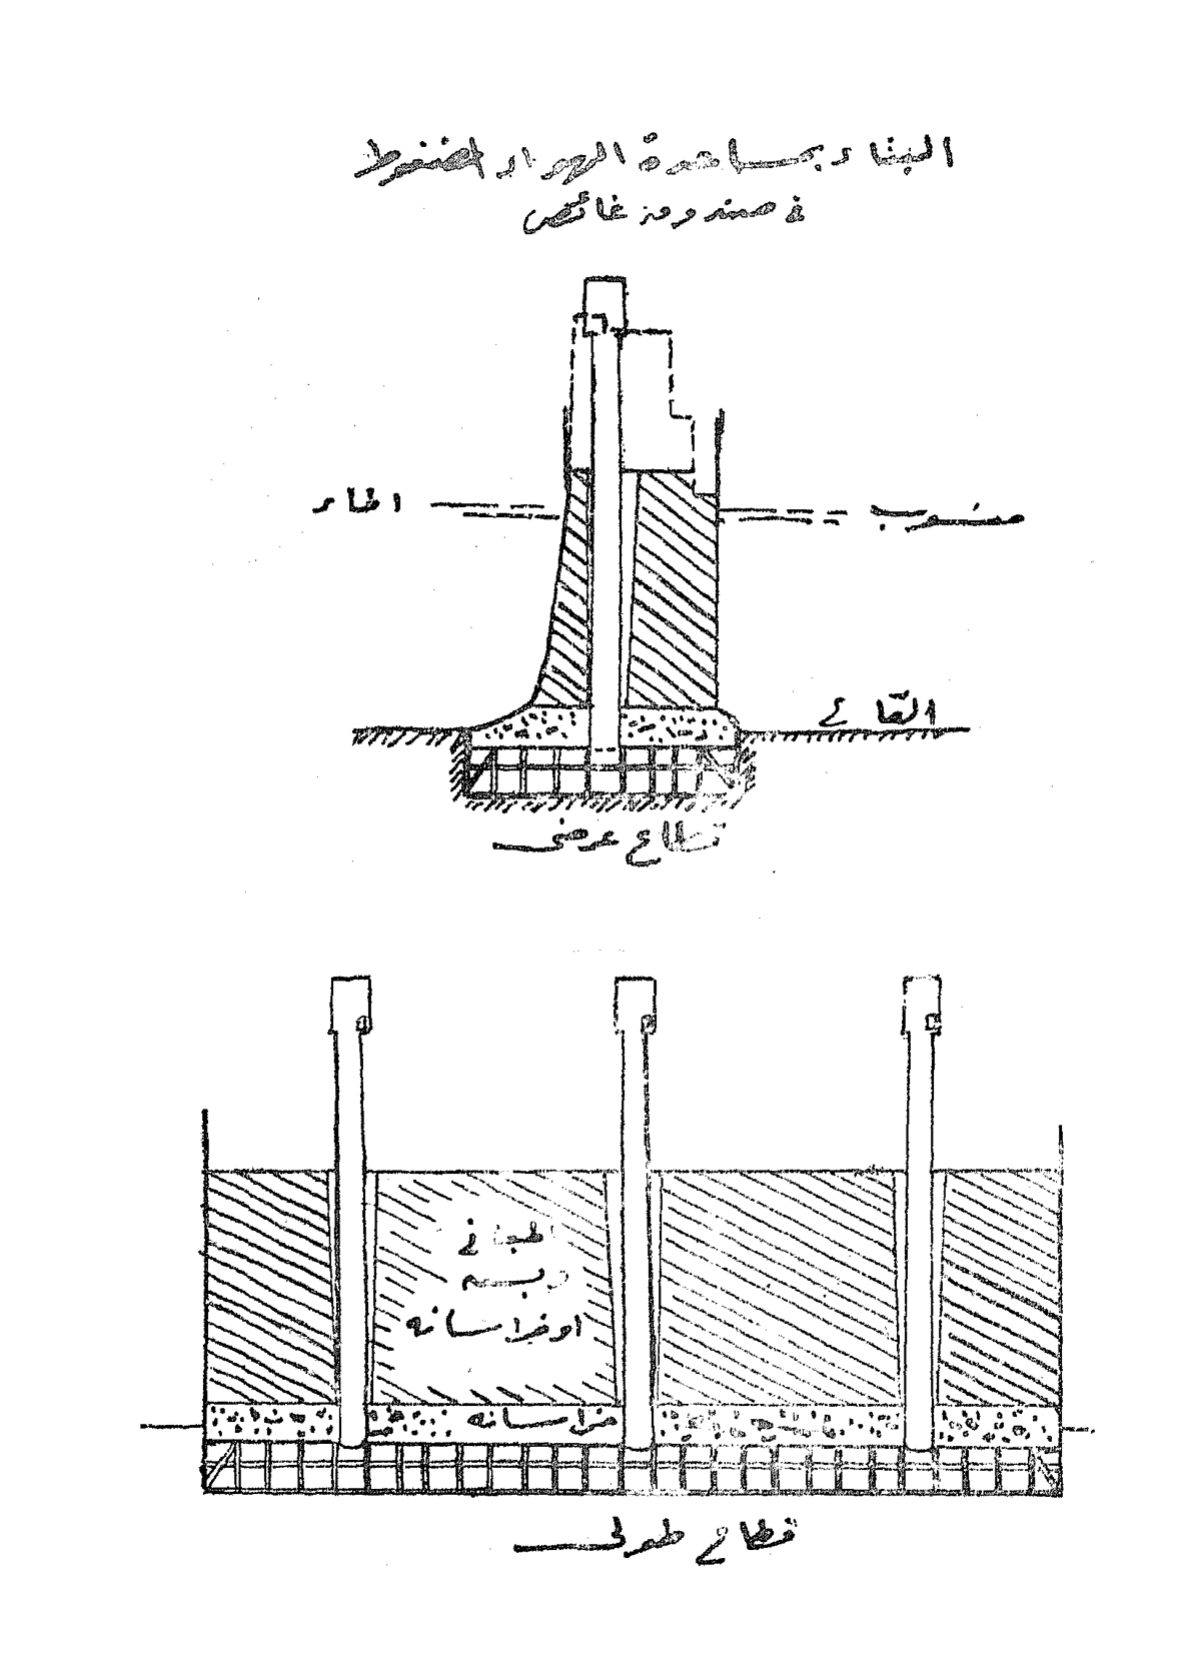 البناء بمساعدة الهواء المضغوط
فى صندوق غائص
منسوب الماء
القاع
قطاع عرضى
المبانى
دبش
او خراسانه
خراسانه
قطاع طولى